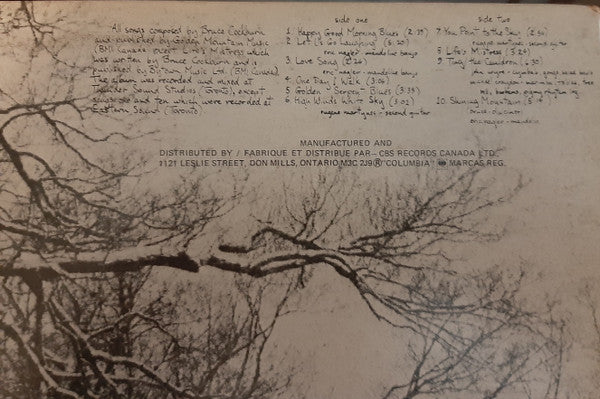 All songs composed by Bruce Cockburn
and published by Golden Mountain Music
(BMI Canada) except Life's Mistress which
was written by Bruce Cockburn and is
published by Bytown Music Ltd. (BMI Canada)
The album was recorded and mixed at
Thunder Sound Studios (Toronto), except
songs and ten which were recorded at
Eastern Sound (Toronto).
side one
1. Happy Good Morning Blues (2:19)
2. Let Us Go Laughing
eric nagler - mandolin banjo
3. Love Song
eric nagler - mandolin banjo
4. One Day I Walk (3:06)
5. Golden Serpent Blues (3:35)
6. High Winds White Sky (3:02)
eugene martynec - second guitar
side two
7. You Point to the Sky
eugene martynec - second guitar
8. Life's Mistress (3:24)
9. Ting the Cauldron
10. Shining Mountain
bruce - dulcimer
eric nagler - mandolin
MANUFACTURED AND
DISTRIBUTED BY / FABRIQUE ET DISTRIBUE PAR — CBS RECORDS CANADA LTD.,
1121 LESLIE STREET, DON MILLS, ONTARIO M3C 2J9 ® "COLUMBIA" MARCAS REG.